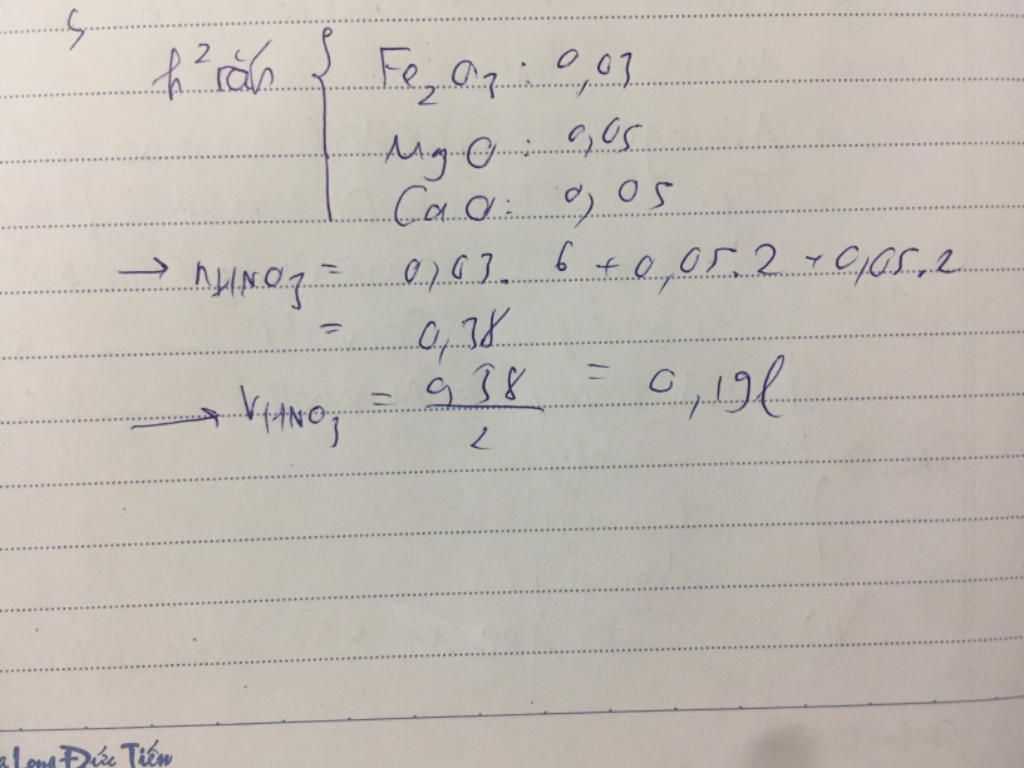 h² rắn { Fe₂O₃ : 0,03
MgO : 0,05
CaO : 0,05
→ nHNO₃ = 0,03. 6 + 0,05.2 + 0,05.2
= 0,38
→ VHNO₃ = 0,38/2 = 0,19l
Long Đức Tiến